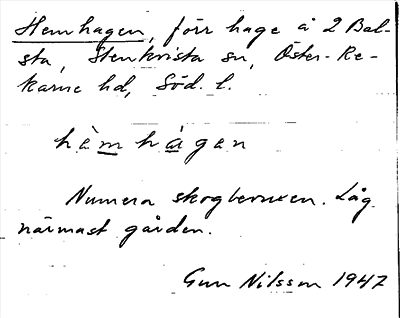 Hemhagen, förr hage å 2 Bal-
sta, Stenkvista sn, Öster-Re-
karne hd, Söd. l.
hèmhàgen
Numera skogbevuxen. Låg
närmast gården.
Gun Nilsson 1947